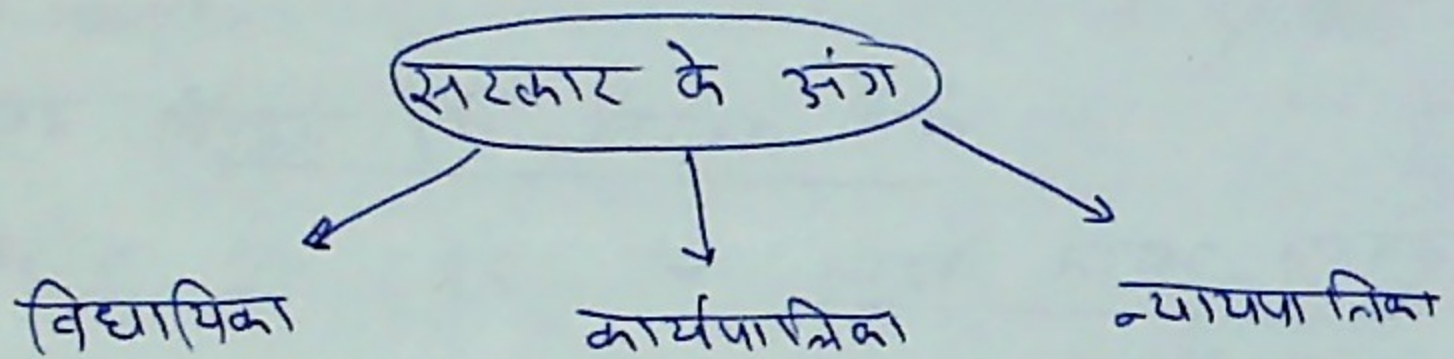 सरकार के अंग
विधायिका कार्यपालिका न्यायपालिका